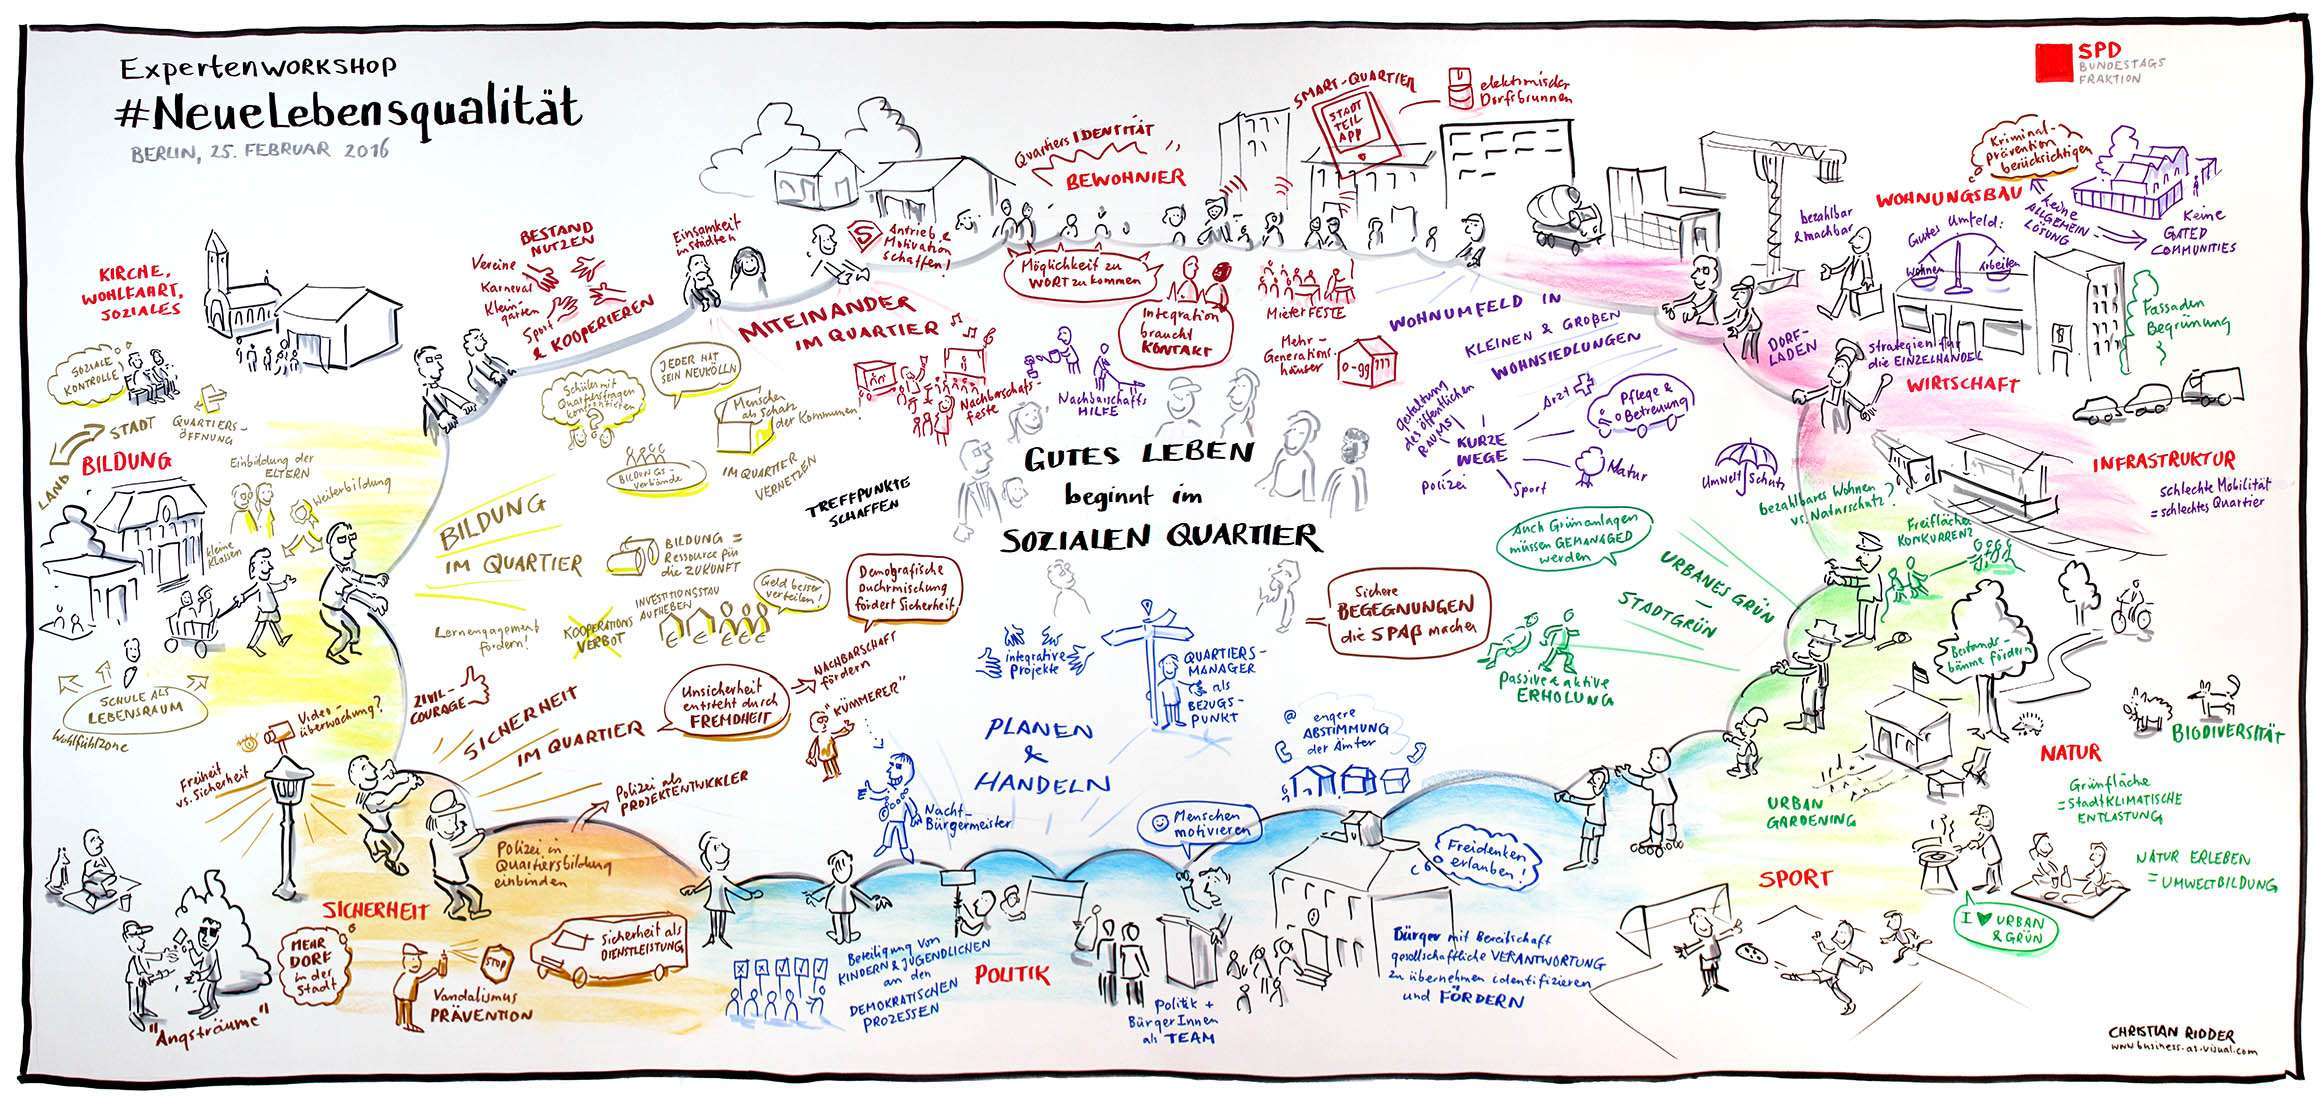 ExpertenWORKSHOP
#NeueLebensqualität
BERLIN, 25. FEBRUAR 2016
SPD
BUNDESTAGS
FRAKTION
KIRCHE,
WOHLFAHRT,
SOZIALES
SOZIALE
KONTROLLE
QUARTIERS-
ÖFFNUNG
STADT
LAND
BILDUNG
Einbildung der
ELTERN
Weiterbildung
kleine
Klassen
SCHULE ALS
LEBENSRAUM
Wohlfühlzone
BESTAND
NUTZEN
Vereine
Karneval
Klein-
gärten
Sport
& KOOPERIEREN
Einsamkeit
in Städten
S
Antrieb &
Motivation
schaffen!
MITEINANDER
IM QUARTIER
QuartiersIDENTITÄT
BEWOHNIER
Möglichkeit zu
WORT zu kommen
Integration
braucht
KONTAKT
MieterFESTE
Mehr-
Generations-
häuser
0-99
Nachbarschafts-
feste
Nachbarschafts
HILFE
SMART-QUARTIER
STADT
TEIL
APP
elektronischer
Dorfbrunnen
Schüler mit
Quartiersfragen
konfrontieren
?
JEDER HAT
SEIN NEUKÖLLN
Menschen
als Schatz
der Kommunen!
BILDUNGS-
verbände
IM QUARTIER
VERNETZEN
TREFFPUNKTE
SCHAFFEN
BILDUNG
IM QUARTIER
BILDUNG =
Ressource für
die ZUKUNFT
Lernengagement
fördern!
KOOPERATIONS
VERBOT
INVESTITIONSSTAU
AUFHEBEN
Geld besser
verteilen!
GUTES LEBEN
beginnt im
SOZIALEN QUARTIER
WOHNUMFELD IN
KLEINEN & GROßEN
WOHNSIEDLUNGEN
gestaltung
des öffentlichen
RAUMS
KURZE
WEGE
Arzt
Pflege &
Betreuung
Natur
Sport
Polizei
Umwelt Schutz
bezahlbar
& machbar
WOHNUNGSBAU
Kriminal-
prävention
berücksichtigen
Keine
ALLGEMEIN
LÖSUNG
Keine
GATED
COMMUNITIES
Gutes Umfeld:
Wohnen
Arbeiten
Fassaden
Begrünung
DORF-
LADEN
Strategien für
die EINZELHANDEL
WIRTSCHAFT
INFRASTRUKTUR
schlechte Mobilität
= schlechtes Quartier
bezahlbares Wohnen
vs. Naturschutz?
Freifläche
KONKURRENZ
Auch Grünanlagen
müssen GEMANAGED
werden
URBANES GRÜN
–
STADTGRÜN
Passive & aktive
ERHOLUNG
Sichere
BEGEGNUNGEN
die SPAß machen
Bestands-
bäume fördern
BIODIVERSITÄT
NATUR
Grünfläche
= StadtKLIMATISCHE
ENTLASTUNG
NATUR ERLEBEN
= UMWELTBILDUNG
URBAN
GARDENING
I ♥ URBAN
& GRÜN
SPORT
Demografische
Duchmischung
fördert Sicherheit
NACHBARSCHAFT
fördern
Unsicherheit
entsteht durch
FREMDHEIT
"KÜMMERER"
ZIVIL-
COURAGE
SICHERHEIT
IM QUARTIER
Polizei als
PROJEKTENTWICKLER
Video-
überwachung?
Freiheit
vs. Sicherheit
Polizei in
Quartiersbildung
einbinden
SICHERHEIT
MEHR
DORF
in der
Stadt
"Angsträume"
STOP
Vandalismus
PRÄVENTION
Sicherheit als
DIENSTLEISTUNG
integrative
Projekte
QUARTIERS-
MANAGER
als
BEZUGS-
PUNKT
PLANEN
&
HANDELN
Nacht-
Bürgermeister
@ engere
ABSTIMMUNG
der Ämter
Menschen
motivieren
Freidenken
erlauben!
Beteiligung von
KINDERN & JUGENDLICHEN
an
DEMOKRATISCHEN
PROZESSEN
POLITIK
Politik +
BürgerInnen
als TEAM
Bürger mit Bereitschaft
gesellschaftliche VERANTWORTUNG
zu übernehmen identifizieren
und FÖRDERN
CHRISTIAN RIDDER
www.business-as-visual.com